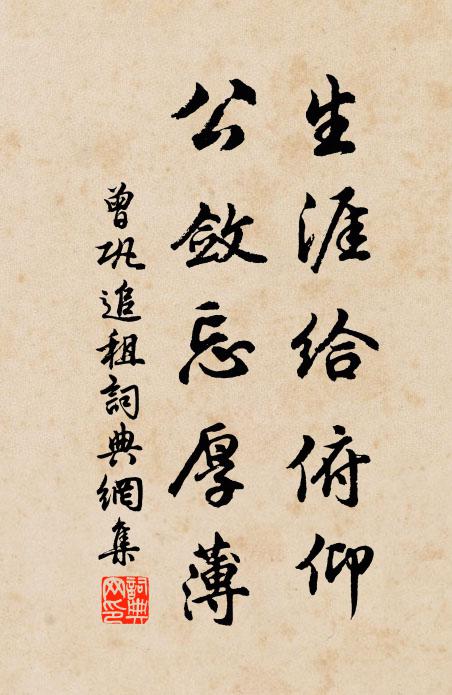 生涯給俯仰
公斂忘厚薄
曾巩追租詞典網集
詞典網印